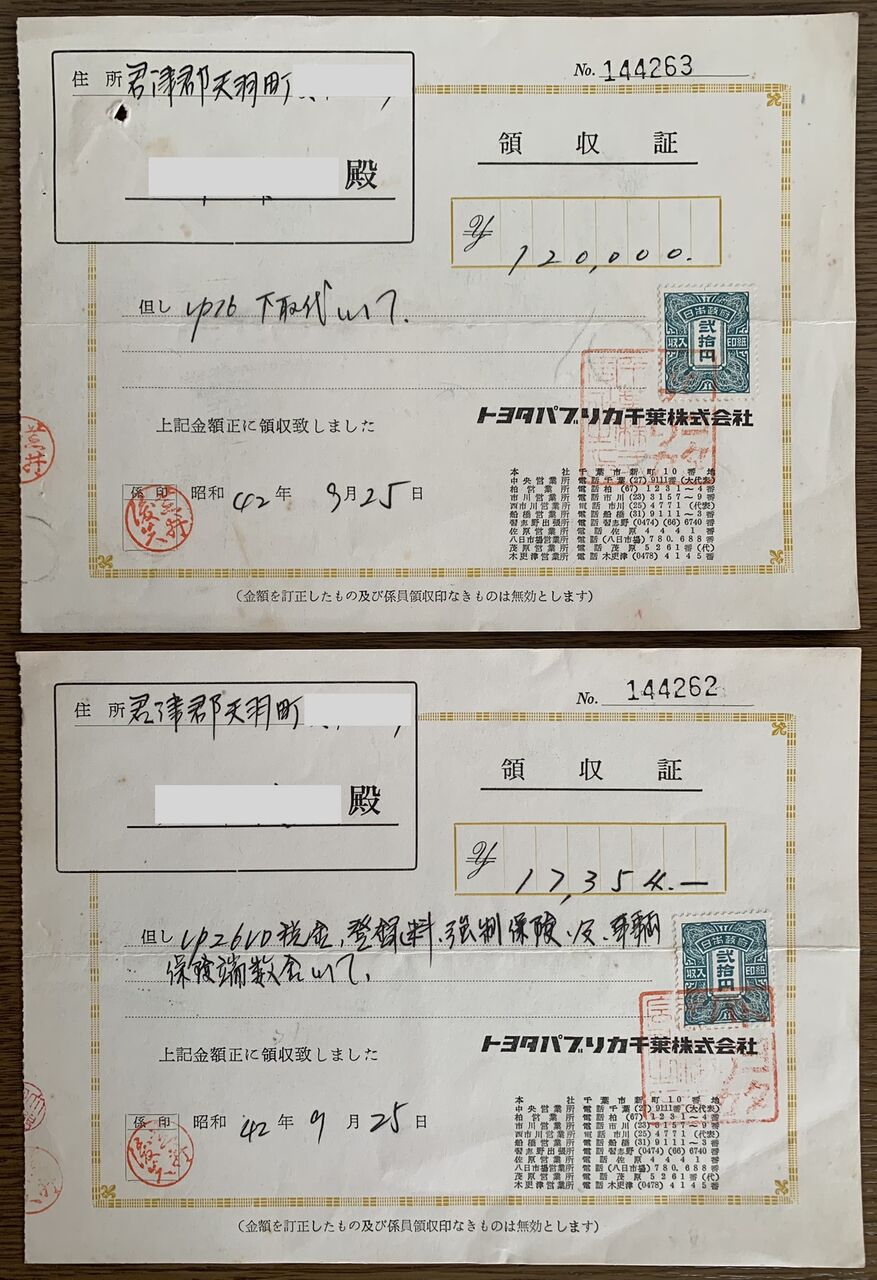 No. 144263
住所 君津郡天羽町
殿
領収証
¥ 120,000.
但し UP26 下取代として.
日本政府
弐拾円
収入印紙
上記金額正に領収致しました
トヨタパブリカ千葉株式会社
係印 昭和 42年 9月 25日
本社 千葉市新町10番地
中央営業所 電話 千葉 (27) 9111番 (大代表)
柏営業所 電話 柏 (67) 1231～4番
市川営業所 電話 市川 (23) 3157～9番
西市川営業所 電話 市川 (25) 4771 (代表)
船橋営業所 電話 船橋 (31) 9111～3番
習志野出張所 電話 習志野 (0474) (66) 6740番
佐原営業所 電話 佐原 4441番
八日市場営業所 電話 (八日市場) 780.688番
茂原営業所 電話 茂原 5261番 (代)
木更津営業所 電話 木更津 (0478) 4145番
(金額を訂正したもの及び係員領収印なきものは無効とします)
No. 144262
住所 君津郡天羽町
殿
領収証
¥ 17,354.—
但し 税金、登録料、強制保険、及、車輌
保険端数金として.
日本政府
弐拾円
収入印紙
上記金額正に領収致しました
トヨタパブリカ千葉株式会社
係印 昭和 42年 9月 25日
本社 千葉市新町10番地
中央営業所 電話 千葉 (27) 9111番 (大代表)
柏営業所 電話 柏 (67) 1231～4番
市川営業所 電話 市川 (23) 6157～9番
西市川営業所 電話 市川 (25) 4771 (代表)
船橋営業所 電話 船橋 (31) 9111～3番
習志野営業所 電話 習志野 (0474) (66) 6740番
佐原営業所 電話 佐原 4441番
八日市場営業所 電話 (八日市場) 780.688番
茂原営業所 電話 茂原 5261番 (代)
木更津営業所 電話 木更津 (0478) 4145番
(金額を訂正したもの及び係員領収印なきものは無効とします)